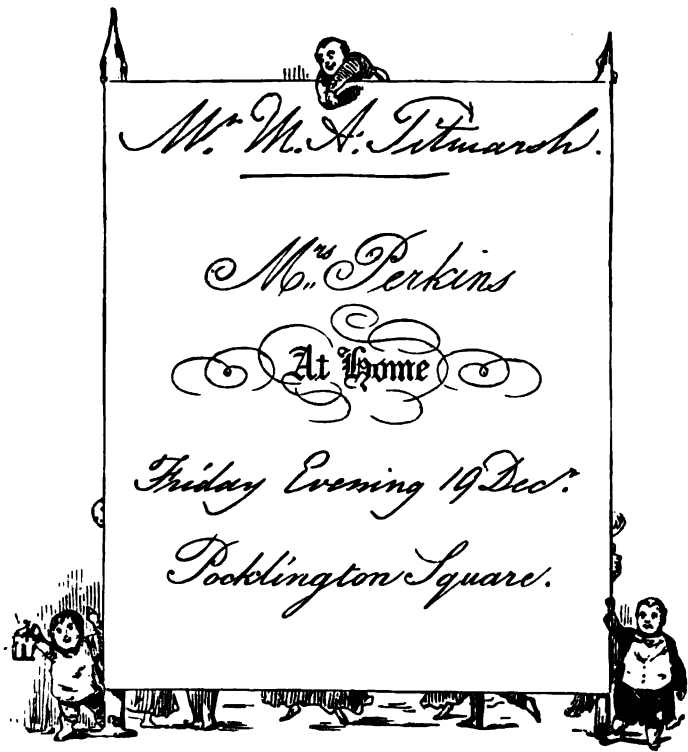 Mr. M. A. Titmarsh.
Mrs Perkins
At Home
Friday Evening 19 Decr.
Pocklington Square.